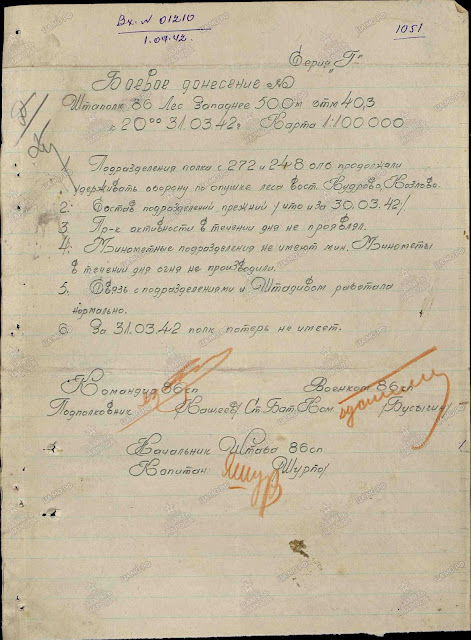 Вх. № 01210
1.04.42.
1051
Серия „Г"
Боевое донесение №
Штаполк 86 Лес Западнее 500м отм 40,3
к 20°° 31.03.42г Карта 1:100000
Подразделения полка с 272 и 248 олб продолжали
удерживать оборону по опушке леса вост. Кудрово, Козлово.
2. Состав подразделений прежний /что и за 30.03.42/.
3. Пр-к активности в течении дня не проявлял.
4. Минометные подразделения не имеют мин. Минометы
в течений дня огня не производили.
5. Связь с подразделениями и Штадивом работала
нормально.
6. За 31.03.42 полк потерь не имеет.
Командир 86сп Военком 86сп
Подполковник /Кашеев/ Ст. Бат. Ком /Бусыгин/
Начальник Штаба 86сп
Капитан /Шурпо/